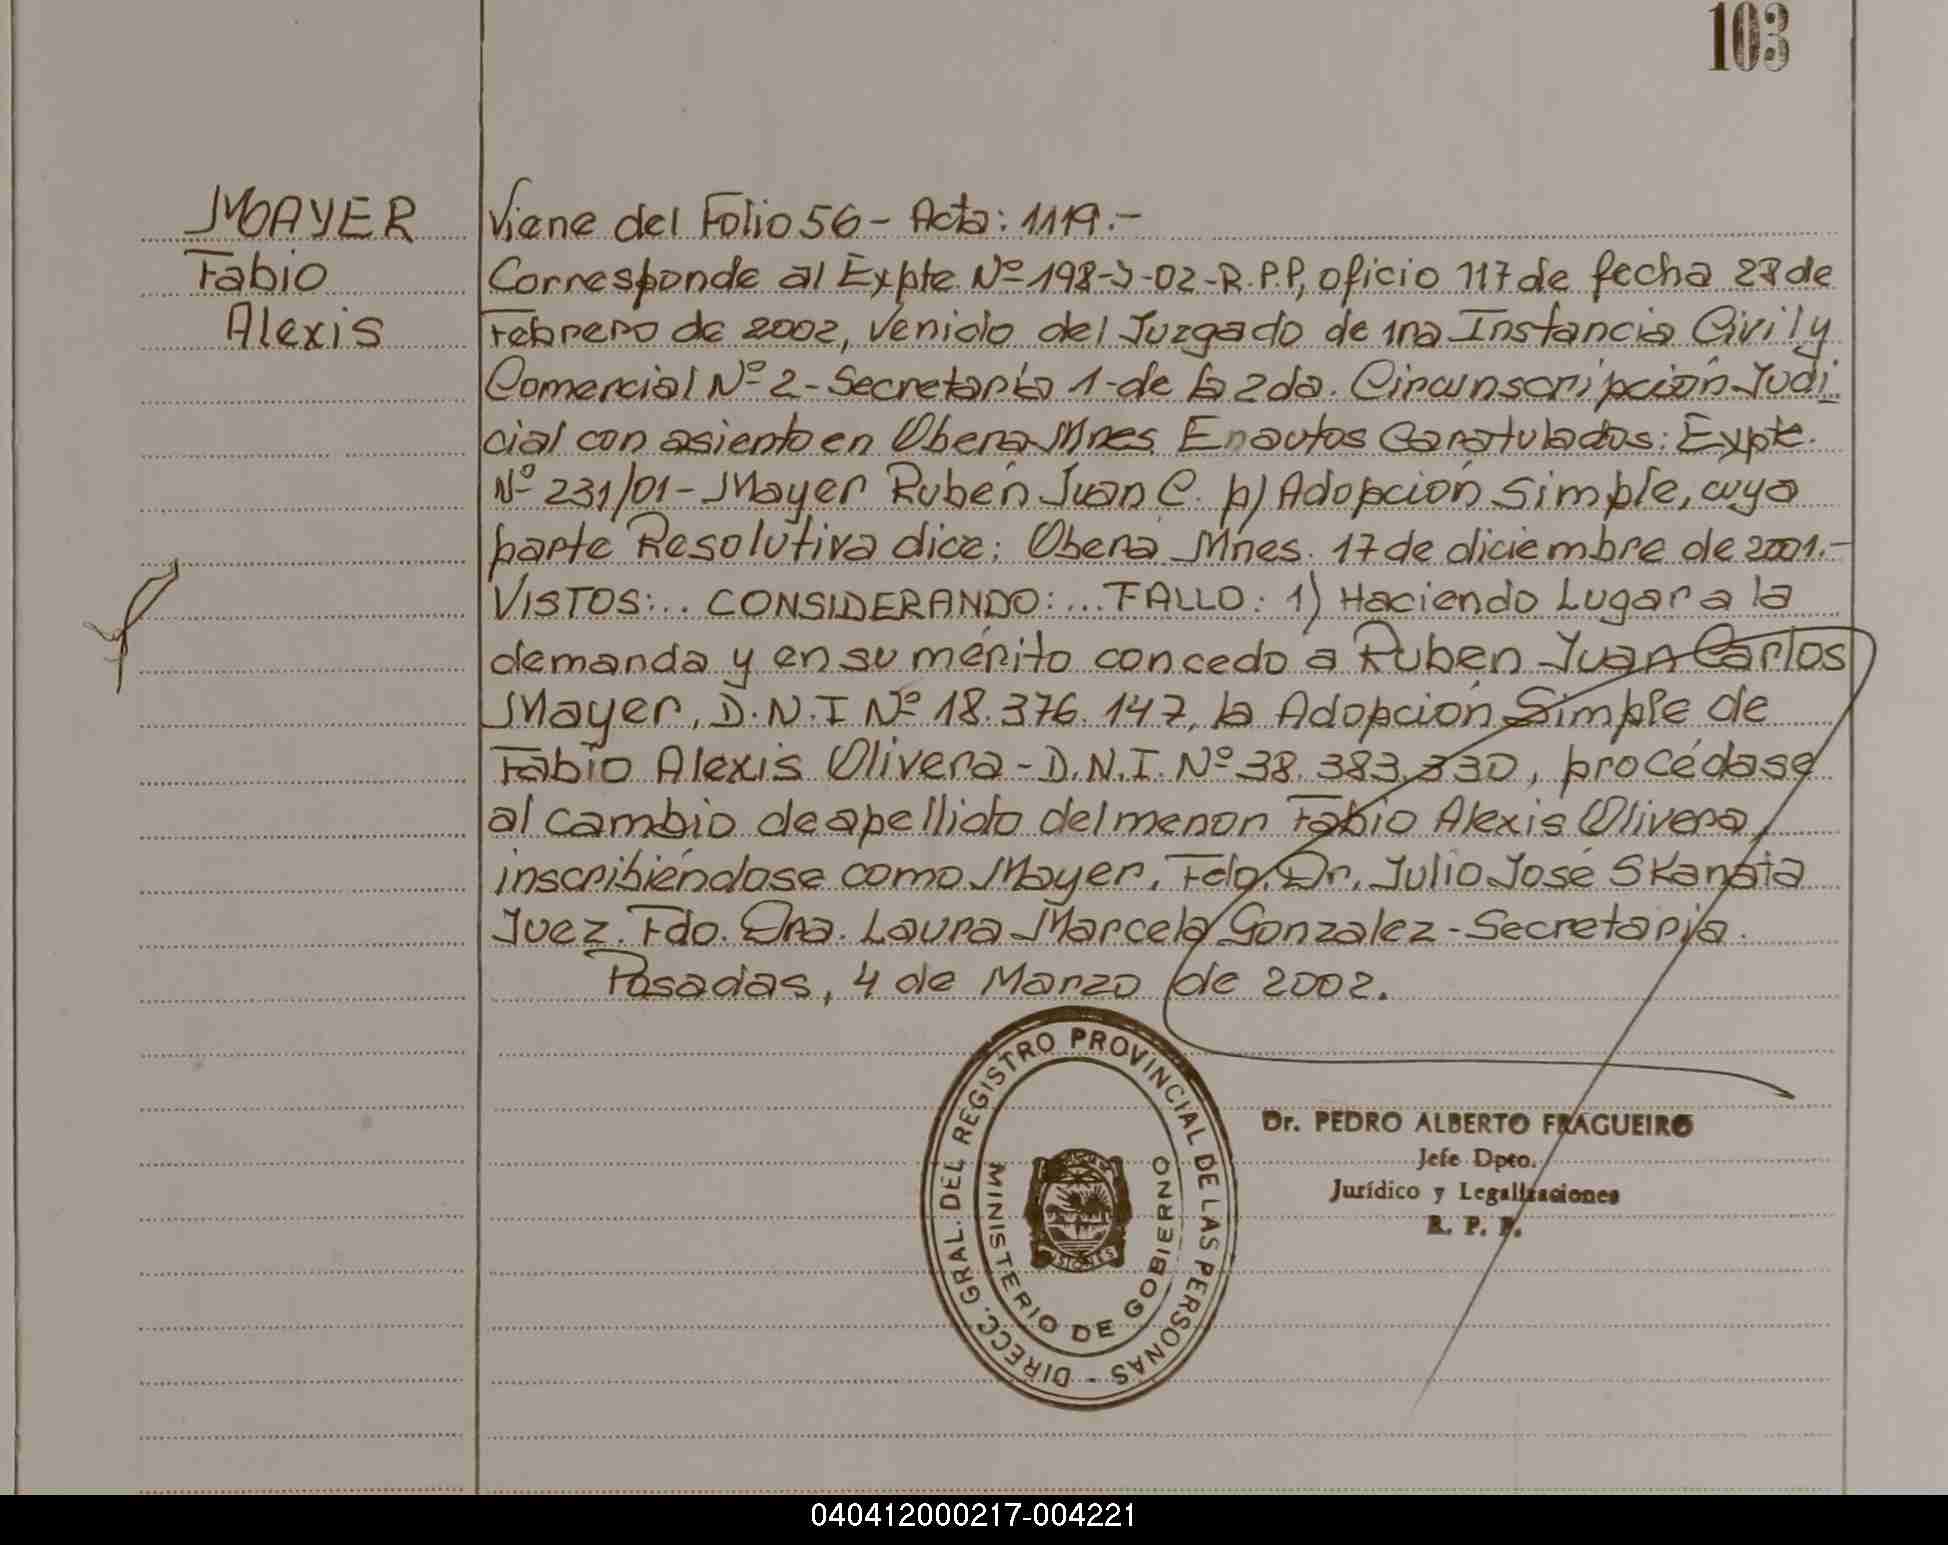 103
MAYER
Fabio
Alexis
Viene del Folio 56 - Acta: 1119.-
Corresponde al Expte. Nº 198-J-02-R.P.P, oficio 117 de fecha 28 de
Febrero de 2002, venido del Juzgado de 1ra Instancia Civil y
Comercial Nº 2 - Secretaría 1 - de la 2da. Circunscripción Judi
cial con asiento en Oberá Mnes. En autos Caratulados: Expte.
Nº 231/01 - Mayer Rubén Juan C. p/ Adopción Simple, cuya
parte Resolutiva dice: Oberá Mnes. 17 de diciembre de 2001.-
VISTOS:.. CONSIDERANDO:... FALLO: 1) Haciendo Lugar a la
demanda y en su mérito concedo a Rubén Juan Carlos
Mayer, D.N.I Nº 18.376.147, la Adopción Simple de
Fabio Alexis Olivera - D.N.I. Nº 38.383.330, procédase
al cambio de apellido del menor Fabio Alexis Olivera,
inscribiéndose como Mayer. Fdo. Dr. Julio José Skanata
Juez. Fdo. Dra. Laura Marcela Gonzalez - Secretaria.
Posadas, 4 de Marzo de 2002.
DIRECC. GRAL. DEL REGISTRO PROVINCIAL DE LAS PERSONAS -
MINISTERIO DE GOBIERNO
Dr. PEDRO ALBERTO FRAGUEIRO
Jefe Dpto.
Jurídico y Legalizaciones
R. P. P.
040412000217-004221